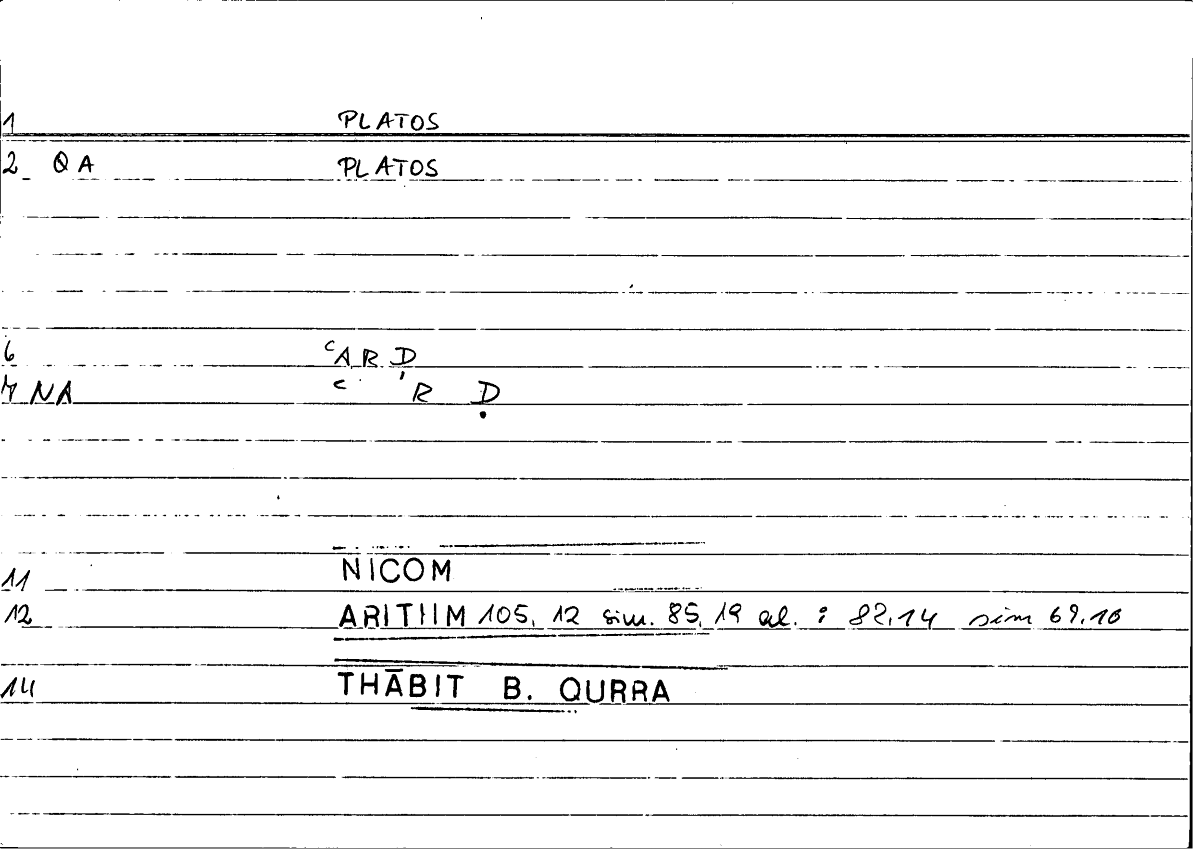 1 PLATOS
2 QA PLATOS
6 ᶜARḌ
7 NA ᶜ RḌ
11 NICOM
12 ARITHM 105, 12 sim. 85, 19 al. : 82.14 sim 69.16
14 THĀBIT B. QURRA